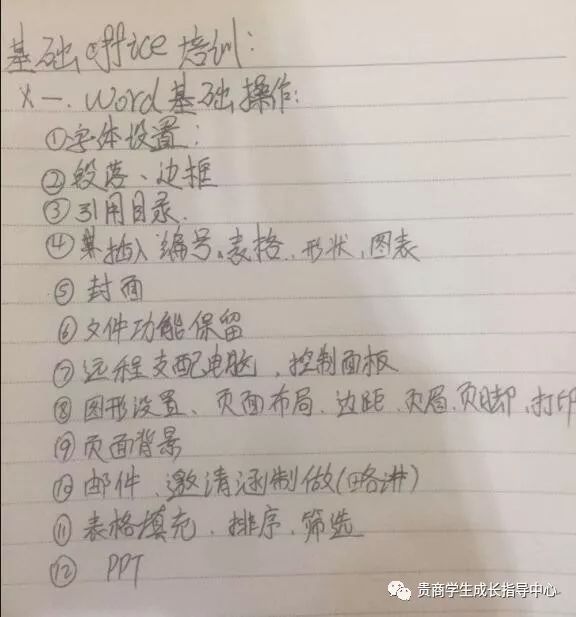 基础office培训:
×一.Word基础操作:
①字体设置:
②段落、边框
③引用目录.
④插入编号、表格、形状、图表
⑤封面
⑥文件功能保留
⑦远程支配电脑、控制面板
⑧图形设置、页面布局、边距、页眉、页脚、打印
⑨页面背景
⑩邮件、邀请涵制做(略讲)
⑪表格填充、排序、筛选
⑫ PPT
贵商学生成长指导中心